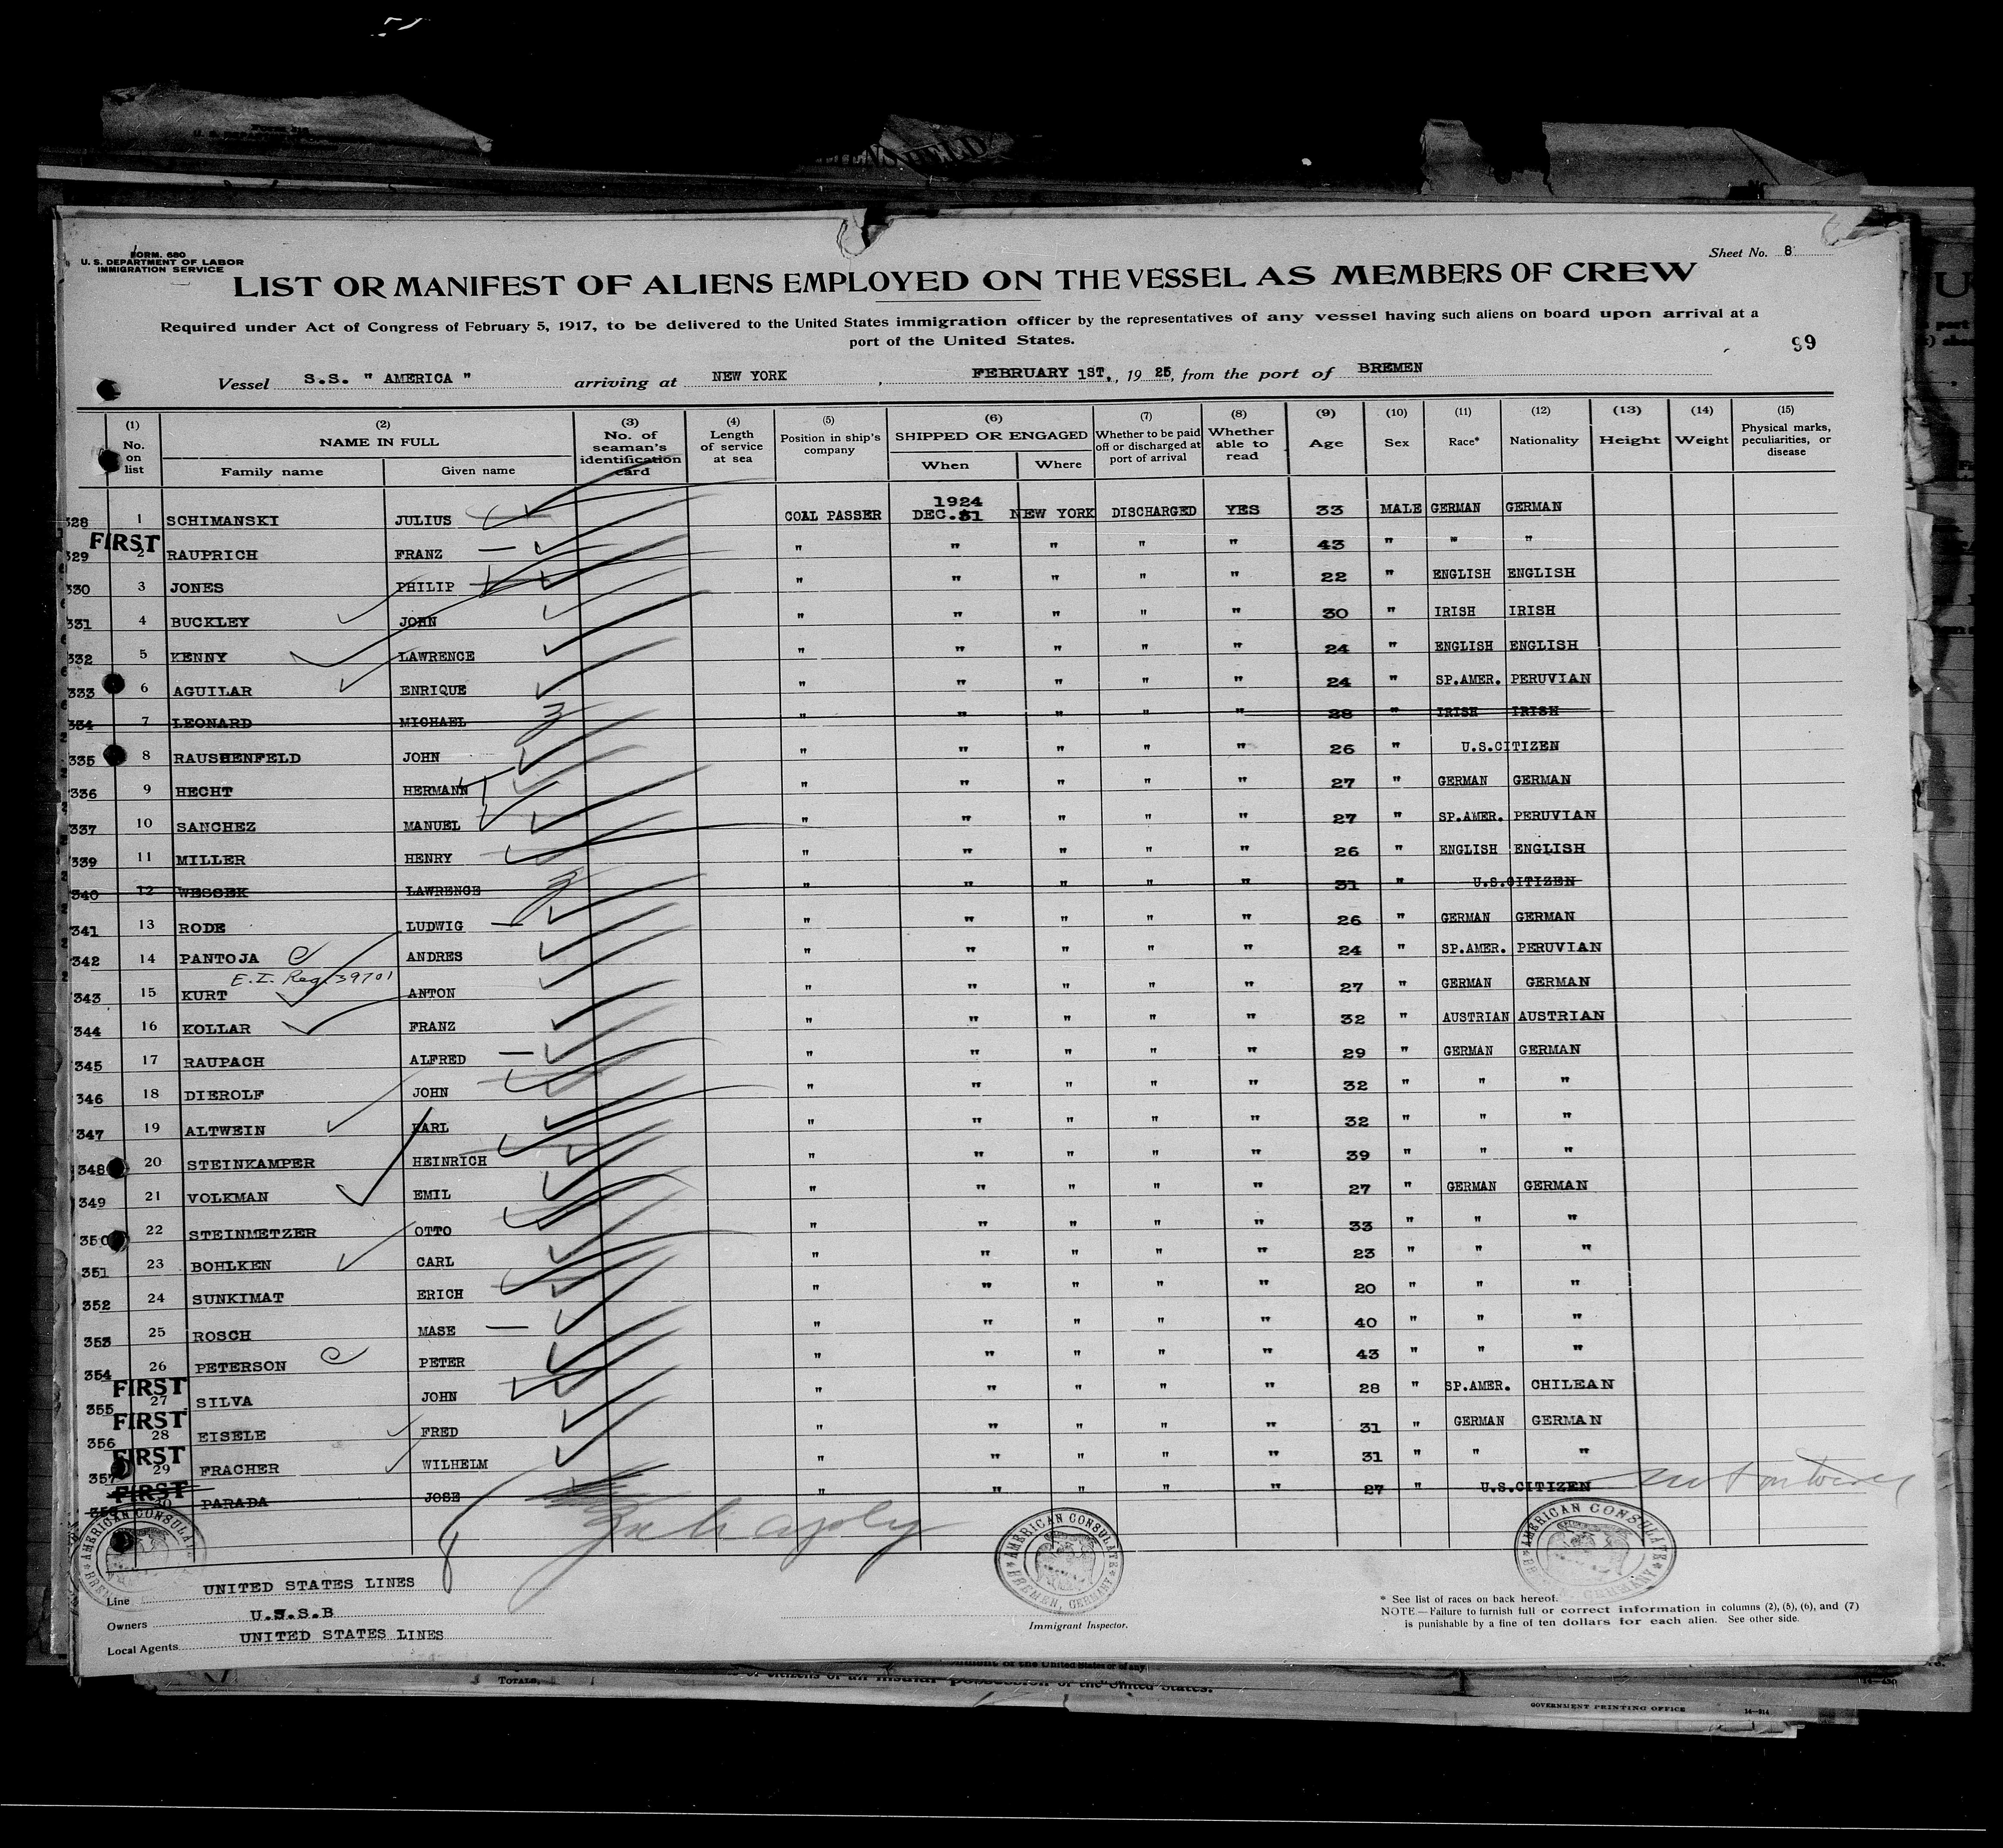 FORM. 680
U. S. DEPARTMENT OF LABOR
IMMIGRATION SERVICE
Sheet No. 8
LIST OR MANIFEST OF ALIENS EMPLOYED ON THE VESSEL AS MEMBERS OF CREW
Required under Act of Congress of February 5, 1917, to be delivered to the United States immigration officer by the representatives of any vessel having such aliens on board upon arrival at a
port of the United States.
99
Vessel S.S. " AMERICA " arriving at NEW YORK, FEBRUARY 1ST., 19 25, from the port of BREMEN
(1) No. on list (2) NAME IN FULL Family name Given name (3) No. of seaman's identification card (4) Length of service at sea (5) Position in ship's company (6) SHIPPED OR ENGAGED When Where (7) Whether to be paid off or discharged at port of arrival (8) Whether able to read (9) Age (10) Sex (11) Race* (12) Nationality (13) Height (14) Weight (15) Physical marks, peculiarities, or disease
328 1 SCHIMANSKI JULIUS COAL PASSER 1924 DEC.31 NEW YORK DISCHARGED YES 33 MALE GERMAN GERMAN
FIRST
329 2 RAUPRICH FRANZ " " " " " 43 " " "
330 3 JONES PHILIP " " " " " 22 " ENGLISH ENGLISH
331 4 BUCKLEY JOHN " " " " " 30 " IRISH IRISH
332 5 KENNY LAWRENCE " " " " " 24 " ENGLISH ENGLISH
333 6 AGUILAR ENRIQUE " " " " " 24 " SP.AMER. PERUVIAN
334 7 LEONARD MICHAEL " " " " " 28 " IRISH IRISH
335 8 RAUSHENFELD JOHN " " " " " 26 " U.S.CITIZEN
336 9 HECHT HERMANN " " " " " 27 " GERMAN GERMAN
337 10 SANCHEZ MANUEL " " " " " 27 " SP.AMER. PERUVIAN
339 11 MILLER HENRY " " " " " 26 " ENGLISH ENGLISH
340 12 WESSEK LAWRENCE " " " " " 31 " U.S.CITIZEN
341 13 RODE LUDWIG " " " " " 26 " GERMAN GERMAN
342 14 PANTOJA ANDRES " " " " " 24 " SP.AMER. PERUVIAN
E.I. Reg. 39701
343 15 KURT ANTON " " " " " 27 " GERMAN GERMAN
344 16 KOLLAR FRANZ " " " " " 32 " AUSTRIAN AUSTRIAN
345 17 RAUPACH ALFRED " " " " " 29 " GERMAN GERMAN
346 18 DIEROLF JOHN " " " " " 32 " " "
347 19 ALTWEIN KARL " " " " " 32 " " "
348 20 STEINKAMPER HEINRICH " " " " " 39 " " "
349 21 VOLKMAN EMIL " " " " " 27 " GERMAN GERMAN
350 22 STEINMETZER OTTO " " " " " 33 " " "
351 23 BOHLKEN CARL " " " " " 23 " " "
352 24 SUNKIMAT ERICH " " " " " 20 " " "
353 25 ROSCH MASE " " " " " 40 " " "
354 26 PETERSON PETER " " " " " 43 " " "
FIRST
355 27 SILVA JOHN " " " " " 28 " SP.AMER. CHILEAN
FIRST
356 28 EISELE FRED " " " " " 31 " GERMAN GERMAN
FIRST
357 29 FRACHER WILHELM " " " " " 31 " " "
FIRST
30 PARADA JOSE " " " " " 27 " U.S.CITIZEN
AMERICAN CONSULATE
AMERICAN CONSULATE BREMEN, GERMANY
AMERICAN CONSULATE GERMANY
Line UNITED STATES LINES
Owners U.S.S.B
Local Agents UNITED STATES LINES
Immigrant Inspector.
* See list of races on back hereof.
NOTE.—Failure to furnish full or correct information in columns (2), (5), (6), and (7)
is punishable by a fine of ten dollars for each alien. See other side.
TOTALS,
of the United States.
GOVERNMENT PRINTING OFFICE